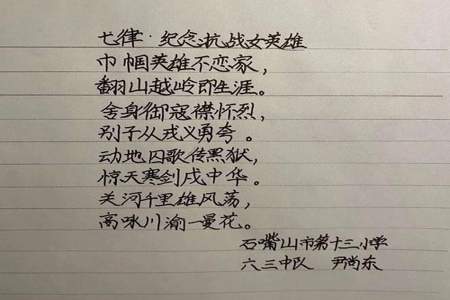 七律·纪念抗战女英雄
巾帼英雄不恋家，
翻山越岭即生涯。
舍身御寇襟怀烈，
别子从戎义勇夸。
动地囚歌传黑狱，
惊天寒剑戍中华。
关河千里雄风荡，
高咏川渝一曼花。
石嘴山市第十三小学
六三中队 尹尚东